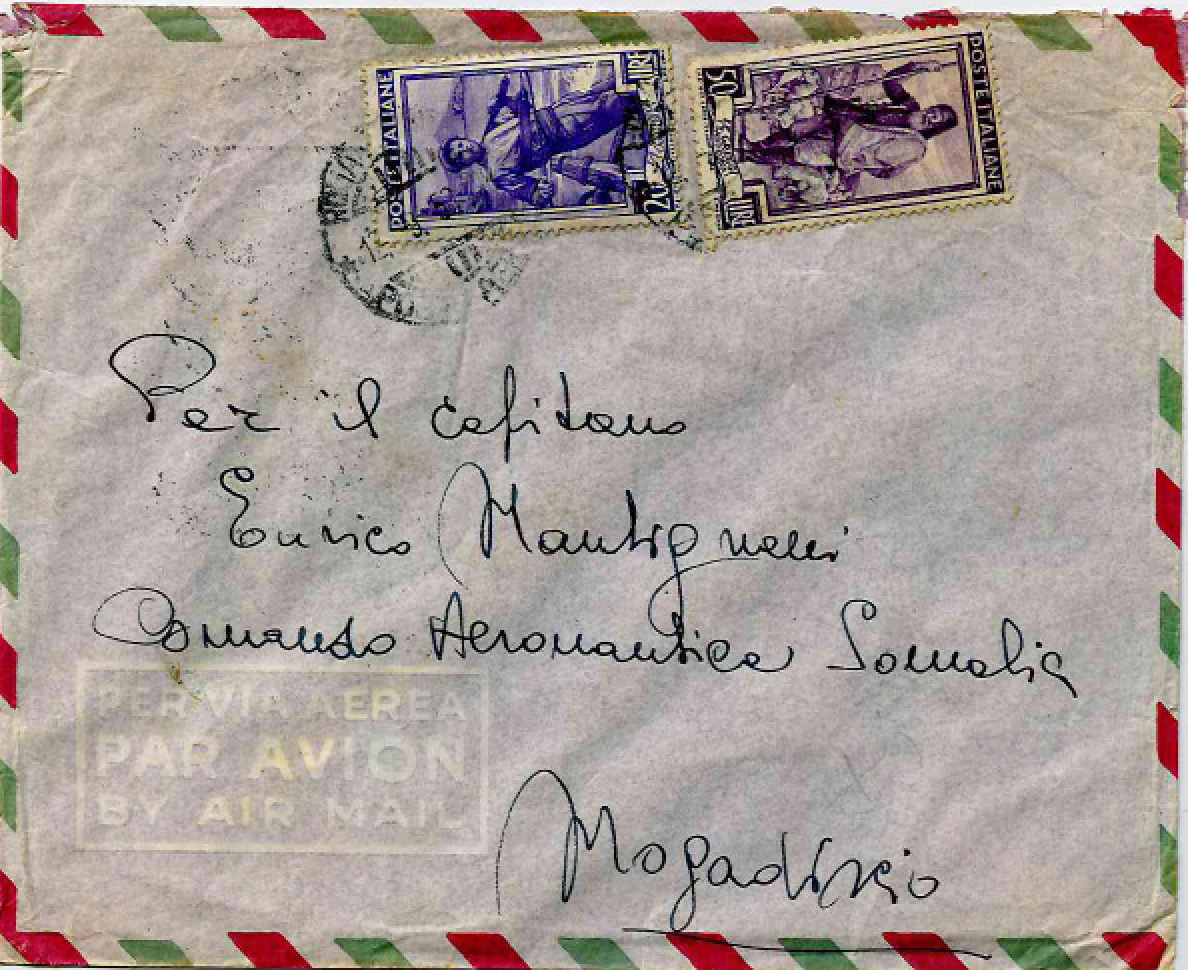 POSTE ITALIANE
20 LIRE
50 LIRE
POSTE ITALIANE
Per il capitano
Enrico
Comando Aeronautica Somalia
PER VIA AEREA
PAR AVION
BY AIR MAIL
Mogadiscio